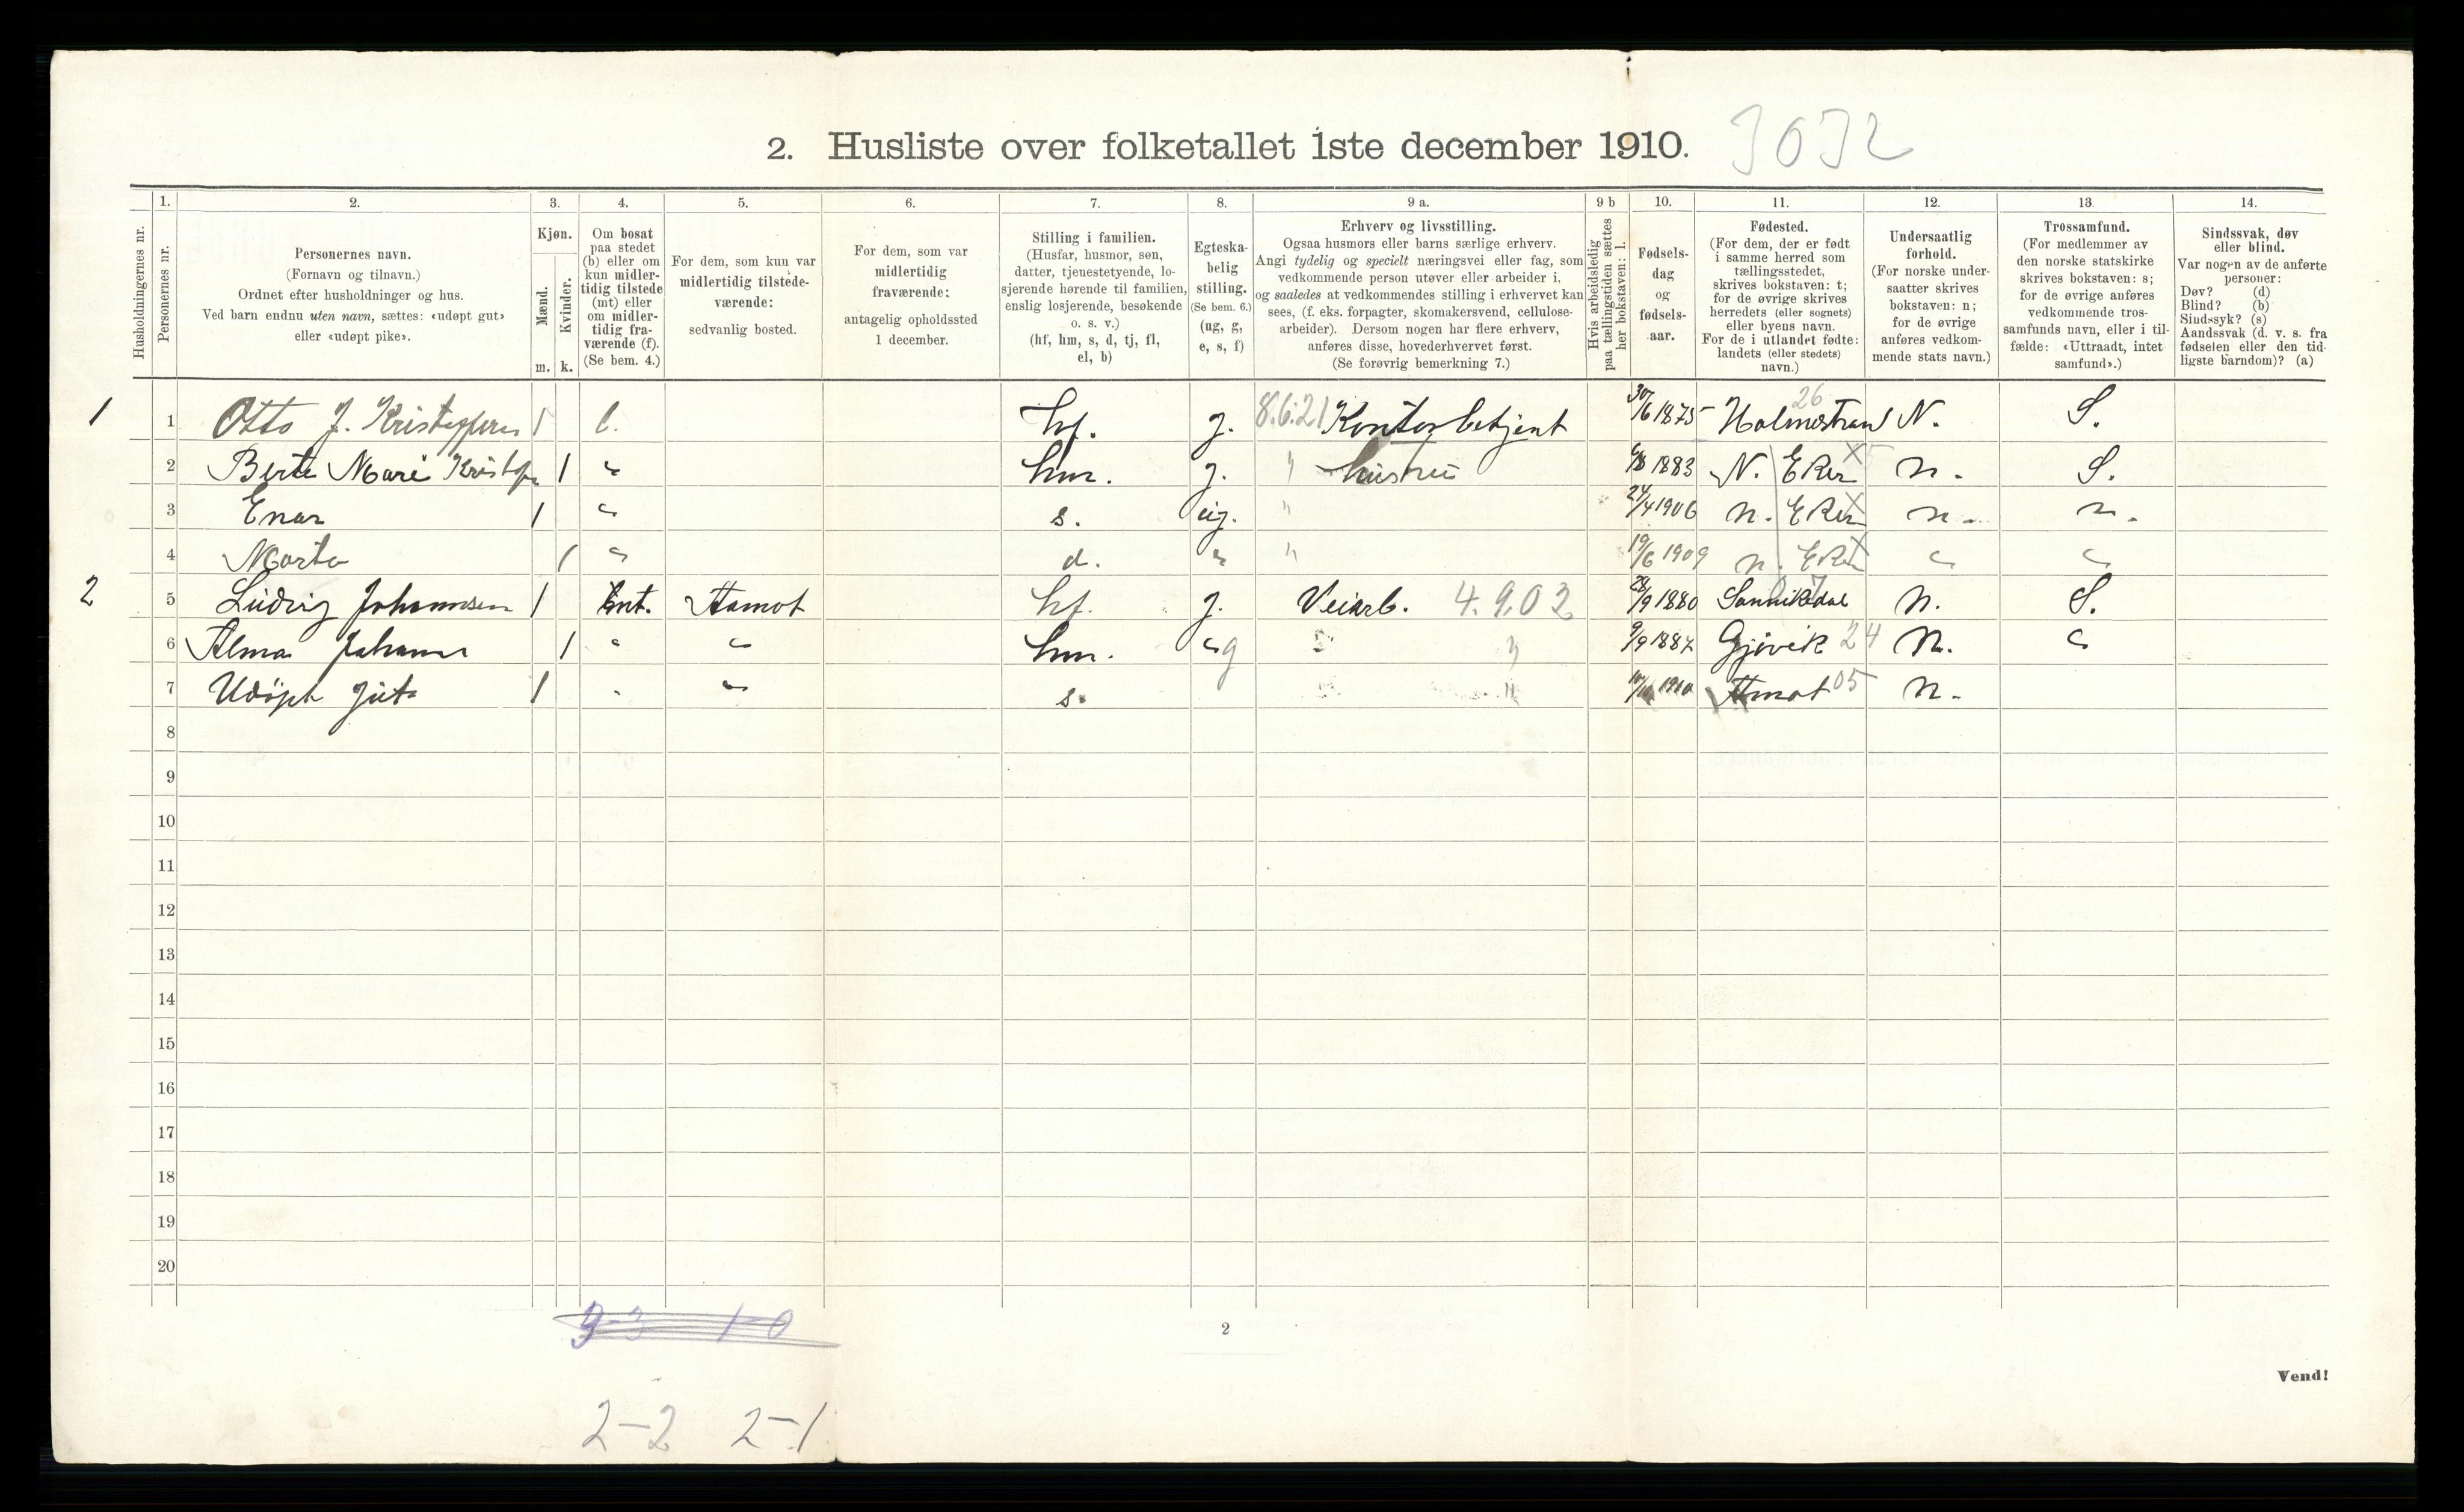 2. Husliste over folketallet 1ste december 1910. 3032
Husholdningernes nr.
1. Personernes nr.
2. Personernes navn.
(Fornavn og tilnavn.)
Ordnet efter husholdninger og hus.
Ved barn endnu uten navn, sættes: «udøpt gut»
eller «udøpt pike».
3. Kjøn.
Mænd. m.
Kvinder. k.
4. Om bosat
paa stedet
(b) eller om
kun midler-
tidig tilstede
(mt) eller
om midler-
tidig fra-
værende (f).
(Se bem. 4.)
5. For dem, som kun var
midlertidig tilstede-
værende:
sedvanlig bosted.
6. For dem, som var
midlertidig
fraværende:
antagelig opholdssted
1 december.
7. Stilling i familien.
(Husfar, husmor, søn,
datter, tjenestetyende, lo-
sjerende hørende til familien,
enslig losjerende, besøkende
o. s. v.)
(hf, hm, s, d, tj, fl,
el, b)
8. Egteska-
belig
stilling.
(Se bem. 6.)
(ug, g,
e, s, f)
9 a. Erhverv og livsstilling.
Ogsaa husmors eller barns særlige erhverv.
Angi tydelig og specielt næringsvei eller fag, som
vedkommende person utøver eller arbeider i,
og saaledes at vedkommendes stilling i erhvervet kan
sees, (f. eks. forpagter, skomakersvend, cellulose-
arbeider). Dersom nogen har flere erhverv,
anføres disse, hovederhvervet først.
(Se forøvrig bemerkning 7.)
9 b Hvis arbeidsledig
paa tællingstiden sættes
her bokstaven: l.
10. Fødsels-
dag
og
fødsels-
aar.
11. Fødested.
(For dem, der er født
i samme herred som
tællingsstedet,
skrives bokstaven: t;
for de øvrige skrives
herredets (eller sognets)
eller byens navn.
For de i utlandet fødte:
landets (eller stedets)
navn.)
12. Undersaatlig
forhold.
(For norske under-
saatter skrives
bokstaven: n;
for de øvrige
anføres vedkom-
mende stats navn.)
13. Trossamfund.
(For medlemmer av
den norske statskirke
skrives bokstaven: s;
for de øvrige anføres
vedkommende tros-
samfunds navn, eller i til-
fælde: «Uttraadt, intet
samfund».)
14. Sindssvak, døv
eller blind.
Var nogen av de anførte
personer:
Døv? (d)
Blind? (b)
Sindssyk? (s)
Aandssvak (d. v. s. fra
fødselen eller den tid-
ligste barndom)? (a)
1 1 Otto J. 1 b. hf. g. 8.6.21 Kontorbetjent 30/6 1875 Holmestrand 26 N. S.
2 Berte Mari Kristof 1 " hm. g. " hustru 1883 N. Eker X n. S.
3 Enar 1 " s. ug. " 24/4 1906 n. Eker X n. n.
4 Marta 1 " d. " " 19/6 1909 n. Eker X " "
2 5 Ludvig Johannsen 1 mt. Aamot hf. g. Veiarb. 4.9.02 1880 Sannikedal n. S.
6 Alma 1 " " hm. " g " 9/9 1887 Gjøvik 24 n. "
7 Udøpt Gut 1 " " s. " 1910 Amot 05 n.
8
9
10
11
12
13
14
15
16
17
18
19
20
3-3 1-0
2
Vend!
2-2 2-1